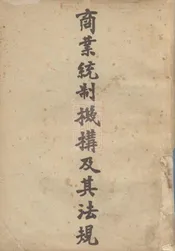 商業統制機搆及其法規